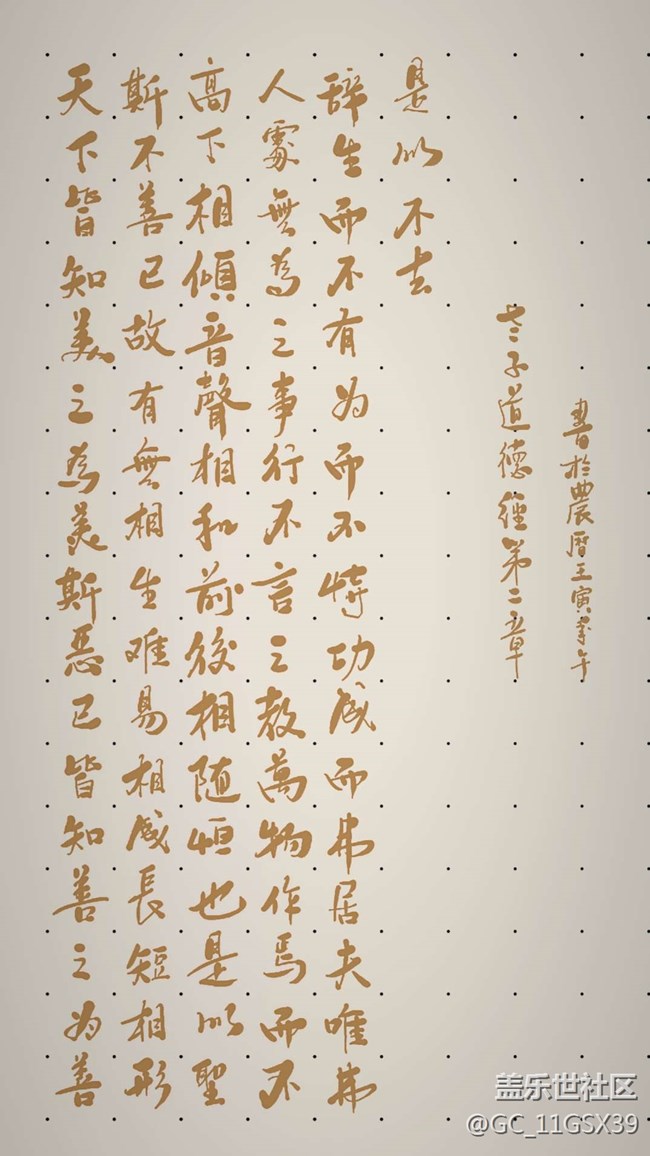 天下皆知美之為美斯恶已皆知善之为善
斯不善已故有無相生难易相成長短相形
高下相傾音聲相和前後相随恒也是以聖
人處無為之事行不言之教萬物作焉而不
辞生而不有为而不恃功成而弗居夫唯弗
是以不去
老子道德經第二章
書於農暦壬寅午
盖乐世社区
@GC_11GSX39